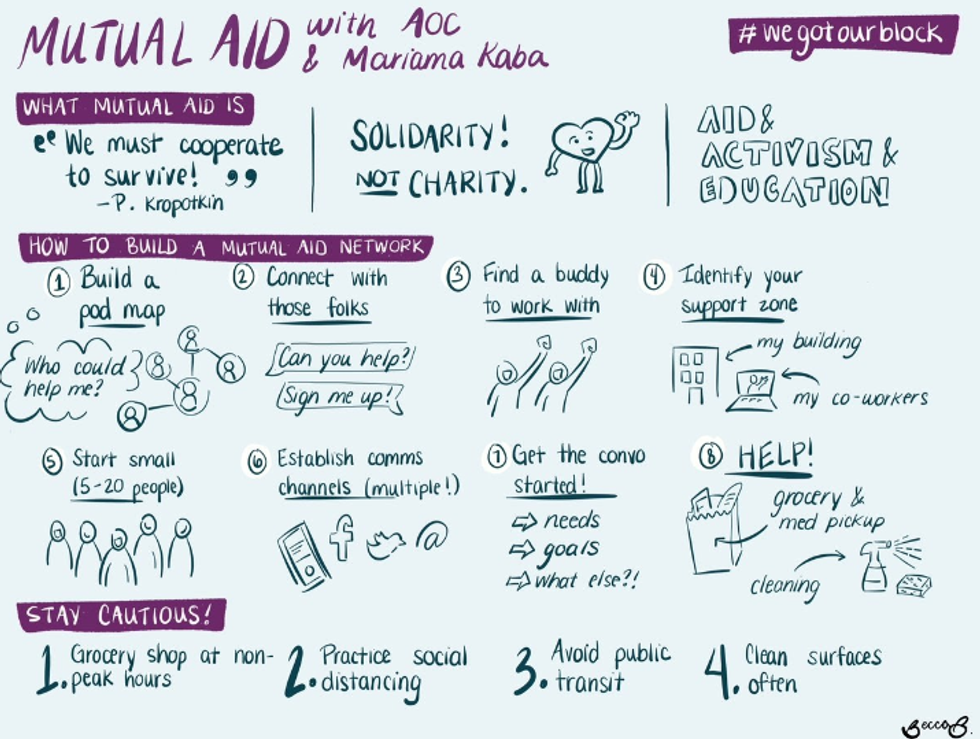 MUTUAL AID with AOC
& Mariama Kaba
#wegotourblock
WHAT MUTUAL AID IS
"We must cooperate
to survive!"
-P. Kropotkin
SOLIDARITY!
NOT CHARITY.
AID &
ACTIVISM &
EDUCATION
HOW TO BUILD A MUTUAL AID NETWORK
1 Build a
pod map
Who could
help me?
2 Connect with
those folks
Can you help?
Sign me up!
3 Find a buddy
to work with
4 Identify your
support zone
my building
my co-workers
5 Start small
(5-20 people)
6 Establish comms
channels (multiple!)
f
@
7 Get the convo
started!
⇨ needs
⇨ goals
⇨ what else?!
8 HELP!
grocery &
med pickup
cleaning
STAY CAUTIOUS!
1. Grocery shop at non-
peak hours
2. Practice social
distancing
3. Avoid public
transit
4. Clean surfaces
often
BeccaB.